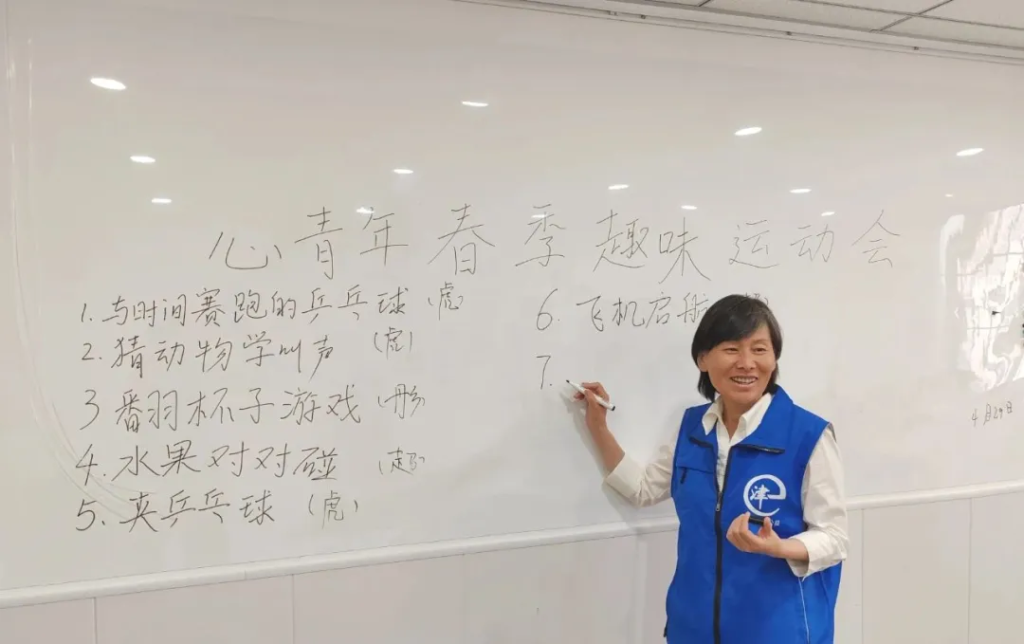 心青年春季趣味运动会
1. 与时间赛跑的乒乓球 (虎)
2. 猜动物学叫声 (虎)
3 翻杯子游戏 (彤)
4. 水果对对碰 (超)
5. 夹乒乓球 (虎)
6. 飞机启航
7.
4月29日
津